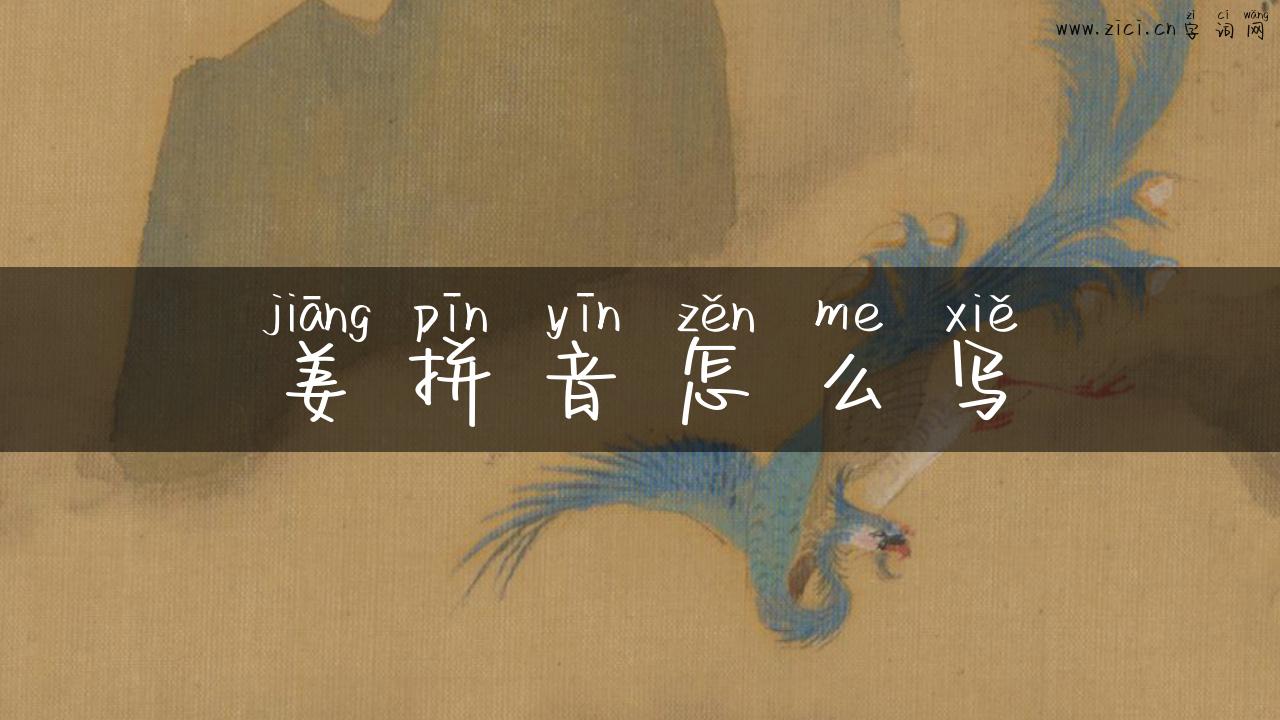 zì cí wǎng
www.zici.cn字词网
jiāng pīn yīn zěn me xiě
姜拼音怎么写